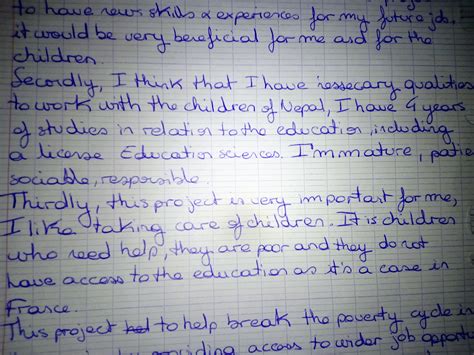 to have news skills & experiences for my future job.
it would be very beneficial for me and for the
children.
Secondly, I think that I have nessecary qualities
to work with the children of Nepal, I have 4 years
of studies in relation to the education, including
a license Education sciences. I'm mature, patie
sociable, responsible.
Thirdly, this project is very important for me,
I like taking care of children. It is children
who need help, they are poor and they do not
have access to the education as it's a case in
France.
This project to help break the poverty cycle in
providing access to wider job opportu